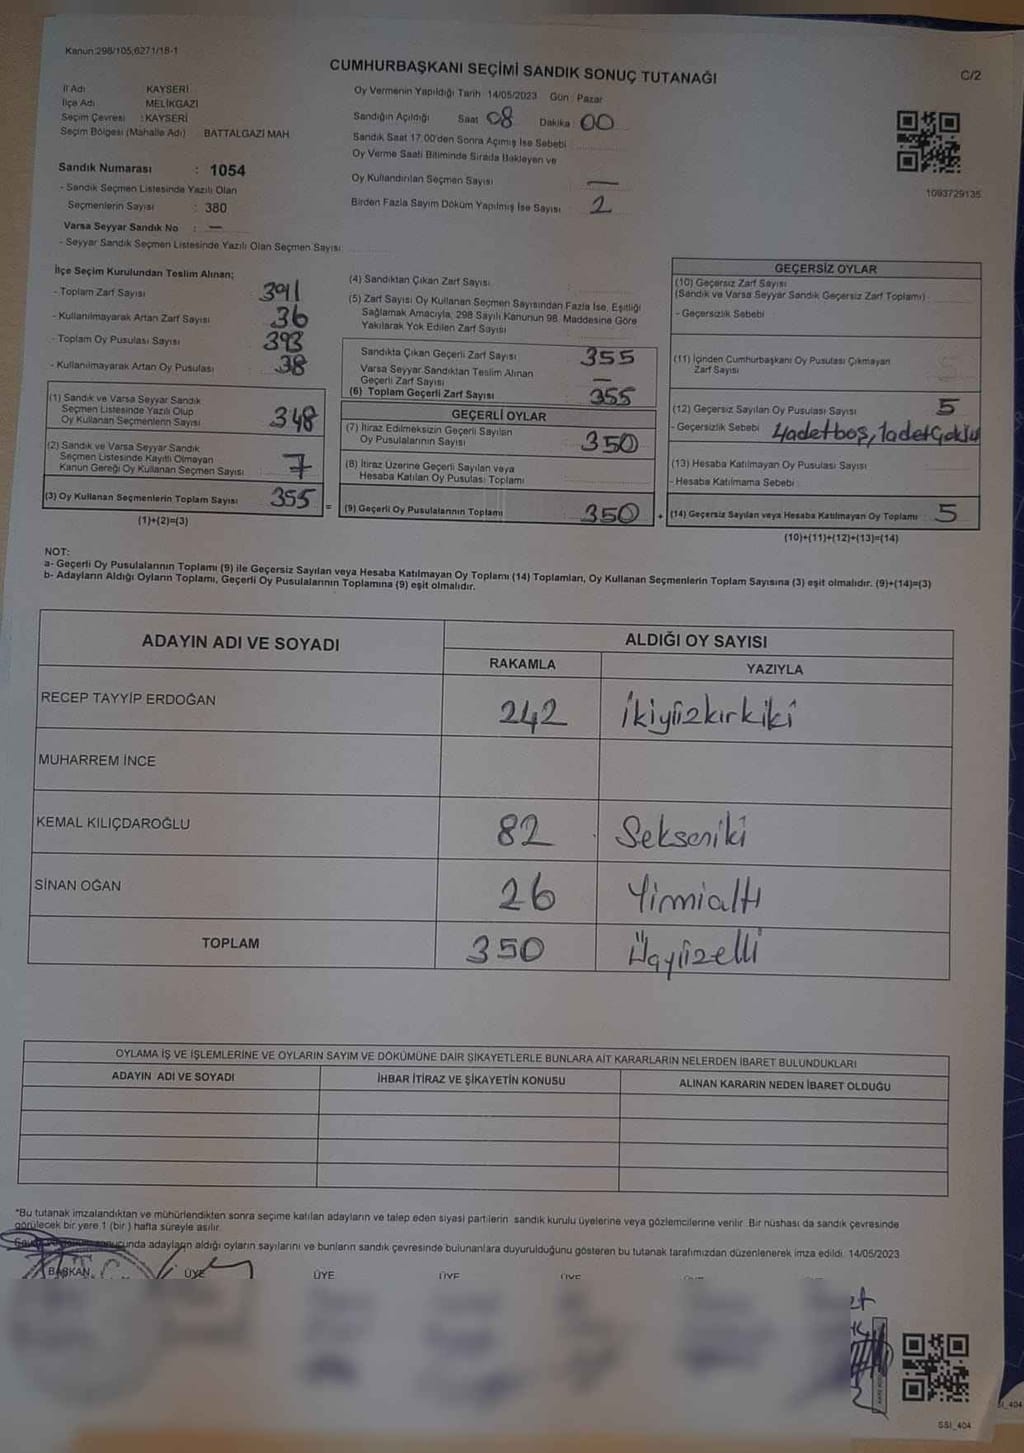 Kanun:298/105,6271/18-1
CUMHURBAŞKANI SEÇİMİ SANDIK SONUÇ TUTANAĞI
C/2
İl Adı KAYSERİ
İlçe Adı MELİKGAZİ
Seçim Çevresi : KAYSERİ
Seçim Bölgesi (Mahalle Adı) BATTALGAZİ MAH.
Oy Vermenin Yapıldığı Tarih 14/05/2023 Gün : Pazar
Sandığın Açıldığı Saat 08 Dakika 00
Sandık Saat 17:00'den Sonra Açımış İse Sebebi
Oy Verme Saati Bitiminde Sırada Bekleyen ve
Oy Kullandırılan Seçmen Sayısı —
Birden Fazla Sayım Döküm Yapılmış İse Sayısı 2
1093729135
Sandık Numarası : 1054
- Sandık Seçmen Listesinde Yazılı Olan
Seçmenlerin Sayısı : 380
Varsa Seyyar Sandık No : —
- Seyyar Sandık Seçmen Listesinde Yazılı Olan Seçmen Sayısı
İlçe Seçim Kurulundan Teslim Alınan;
- Toplam Zarf Sayısı 391
- Kullanılmayarak Artan Zarf Sayısı 36
- Toplam Oy Pusulası Sayısı 393
- Kullanılmayarak Artan Oy Pusulası 38
(1) Sandık ve Varsa Seyyar Sandık
Seçmen Listesinde Yazılı Olup
Oy Kullanan Seçmenlerin Sayısı 348
(2) Sandık ve Varsa Seyyar Sandık
Seçmen Listesinde Kayıtlı Olmayan
Kanun Gereği Oy Kullanan Seçmen Sayısı 7
(3) Oy Kullanan Seçmenlerin Toplam Sayısı 355
(1)+(2)=(3)
(4) Sandıktan Çıkan Zarf Sayısı
(5) Zarf Sayısı Oy Kullanan Seçmen Sayısından Fazla İse, Eşitliği
Sağlamak Amacıyla, 298 Sayılı Kanunun 98. Maddesine Göre
Yakılarak Yok Edilen Zarf Sayısı
Sandıkta Çıkan Geçerli Zarf Sayısı 355
Varsa Seyyar Sandıktan Teslim Alınan
Geçerli Zarf Sayısı —
(6) Toplam Geçerli Zarf Sayısı 355
GEÇERLİ OYLAR
(7) İtiraz Edilmeksizin Geçerli Sayılan
Oy Pusulalarının Sayısı 350
(8) İtiraz Üzerine Geçerli Sayılan veya
Hesaba Katılan Oy Pusulası Toplamı
= (9) Geçerli Oy Pusulalarının Toplamı 350
GEÇERSİZ OYLAR
(10) Geçersiz Zarf Sayısı
(Sandık ve Varsa Seyyar Sandık Geçersiz Zarf Toplamı)
- Geçersizlik Sebebi
(11) İçinden Cumhurbaşkanı Oy Pusulası Çıkmayan
Zarf Sayısı
(12) Geçersiz Sayılan Oy Pusulası Sayısı 5
- Geçersizlik Sebebi 4adetboş, 1adetçoklu
(13) Hesaba Katılmayan Oy Pusulası Sayısı
- Hesaba Katılmama Sebebi
+ (14) Geçersiz Sayılan veya Hesaba Katılmayan Oy Toplamı 5
(10)+(11)+(12)+(13)=(14)
NOT:
a- Geçerli Oy Pusulalarının Toplamı (9) ile Geçersiz Sayılan veya Hesaba Katılmayan Oy Toplamı (14) Toplamları, Oy Kullanan Seçmenlerin Toplam Sayısına (3) eşit olmalıdır. (9)+(14)=(3)
b- Adayların Aldığı Oyların Toplamı, Geçerli Oy Pusulalarının Toplamına (9) eşit olmalıdır.
ADAYIN ADI VE SOYADI
ALDIĞI OY SAYISI
RAKAMLA YAZIYLA
RECEP TAYYİP ERDOĞAN 242 İkiyüzkırkiki
MUHARREM İNCE
KEMAL KILIÇDAROĞLU 82 Sekseniki
SİNAN OĞAN 26 Yirmialtı
TOPLAM 350 Üçyüzelli
OYLAMA İŞ VE İŞLEMLERİNE VE OYLARIN SAYIM VE DÖKÜMÜNE DAİR ŞİKAYETLERLE BUNLARA AİT KARARLARIN NELERDEN İBARET BULUNDUKLARI
ADAYIN ADI VE SOYADI İHBAR İTİRAZ VE ŞİKAYETİN KONUSU ALINAN KARARIN NEDEN İBARET OLDUĞU
*Bu tutanak imzalandıktan ve mühürlendikten sonra seçime katılan adayların ve talep eden siyasi partilerin sandık kurulu üyelerine veya gözlemcilerine verilir. Bir nüshası da sandık çevresinde
görülecek bir yere 1 (bir) hafta süreyle asılır.
adayların aldığı oyların sayılarını ve bunların sandık çevresinde bulunanlara duyurulduğunu gösteren bu tutanak tarafımızdan düzenlenerek imza edildi. 14/05/2023
BAŞKAN ÜYE ÜYE ÜYE ÜYE
SSİ_404